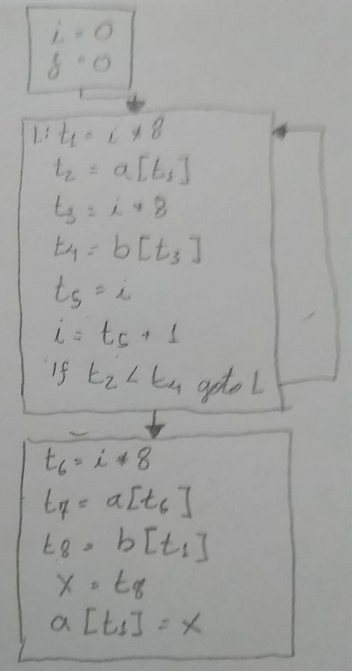 i = 0
j = 0
L: t1 = i * 8
t2 = a[t1]
t3 = i * 8
t4 = b[t3]
t5 = i
i = t5 + 1
if t2 < t4 goto L
t6 = i * 8
t7 = a[t6]
t8 = b[t1]
x = t8
a[t1] = x